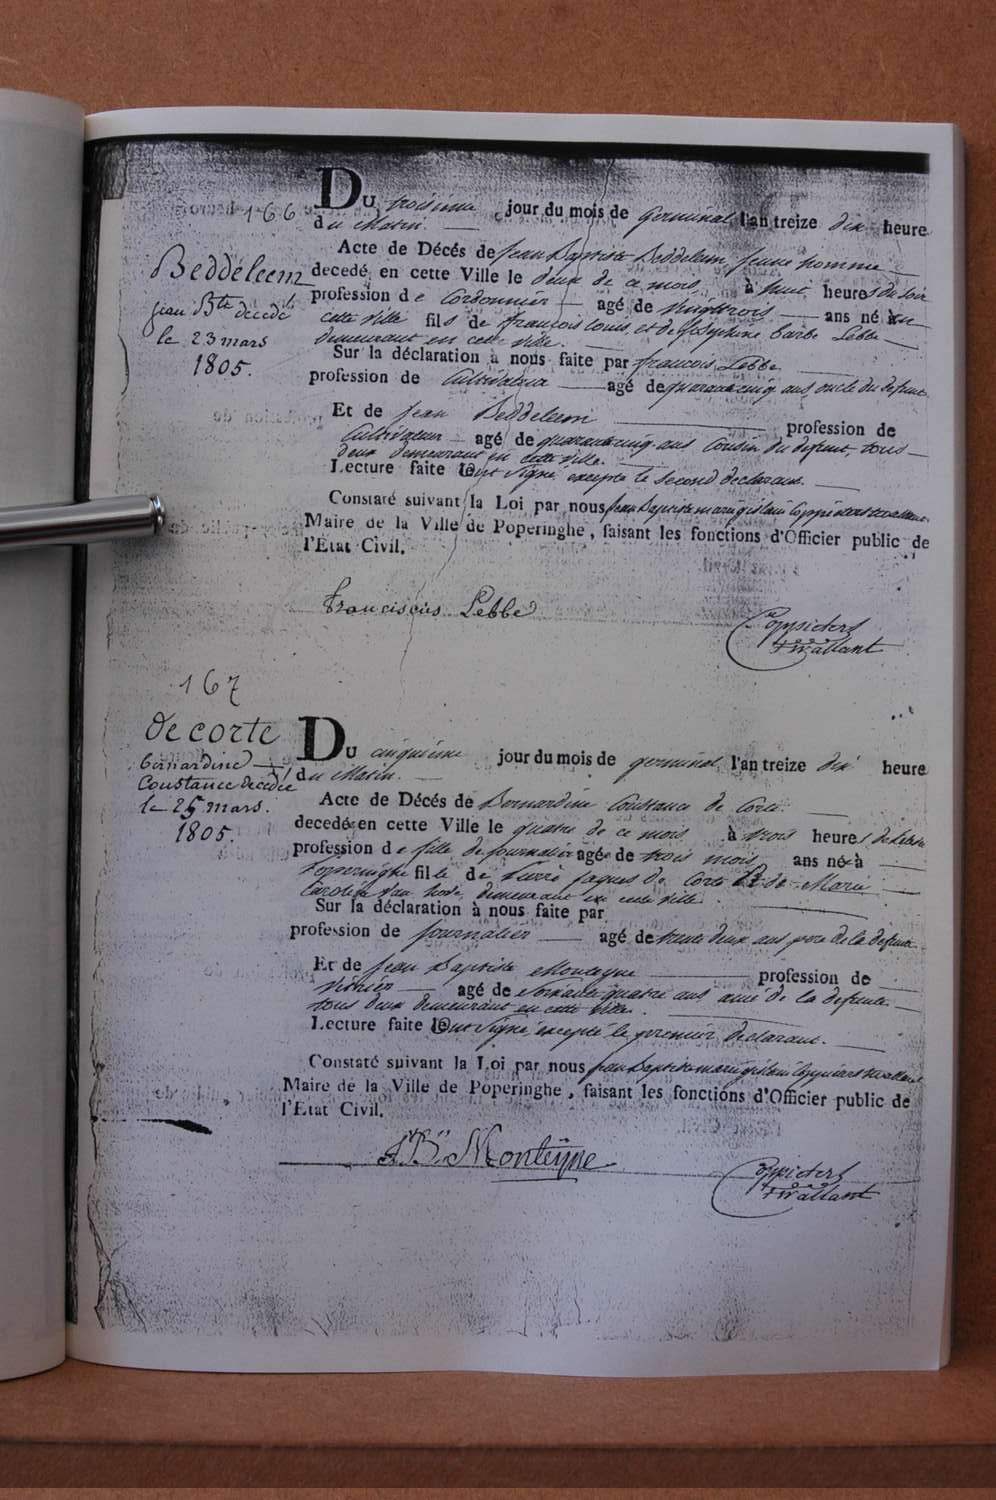 166
Beddeleem
jean Bte decedé
le 23 mars
1805.
Du troisieme jour du mois de germinal l'an treize dix heure
du Matin.
Acte de Décés de Jean Baptiste Beddeleem jeune homme
decedé en cette Ville le deux de ce mois à huit heures du soir
profession de Cordonnier agé de vingt trois ans né en
cette ville fils de francois Louis, et de Josephine barbe Lebbe
demeurant en cette ville.
Sur la déclaration à nous faite par francois Lebbe
profession de Cultivateur agé de quarante cinq ans oncle du defunt
Et de Jean Beddeleem profession de
Cultivateur agé de quarante cinq ans Cousin du defunt, tous
deux demeurant en cette ville.
Lecture faite ont signé excepté le second declarant.
Constaté suivant la Loi par nous jean Baptiste marie gislain Coppieters
Maire de la Ville de Poperinghe, faisant les fonctions d'Officier public de
l'Etat Civil.
Franciscus Lebbe
Coppieters
t'wallant
167
de corte
bernardine
Constance decedée
le 25 mars.
1805.
Du cinquieme jour du mois de germinal l'an treize dix heure
du Matin.
Acte de Décés de Bernardine Constance de Corte
decedé en cette Ville le quatre de ce mois à trois heures de
profession de fille de journalier agé de trois mois ans né à
Poperinghe fille de Pierre Jaques de Corte et de Marie
Caroline demeurant en cette ville
Sur la déclaration à nous faite par
profession de journalier agé de trente deux ans pere de la defunte
Et de Jean Baptiste Monteyne profession de
agé de soixante quatre ans ami de la defunte
tous deux demeurant en cette ville.
Lecture faite ont signé, excepté le premier declarant.
Constaté suivant la Loi par nous jean Baptiste marie gislain Coppieters
Maire de la Ville de Poperinghe, faisant les fonctions d'Officier public de
l'Etat Civil.
J B Monteyne
Coppieters
t'wallant